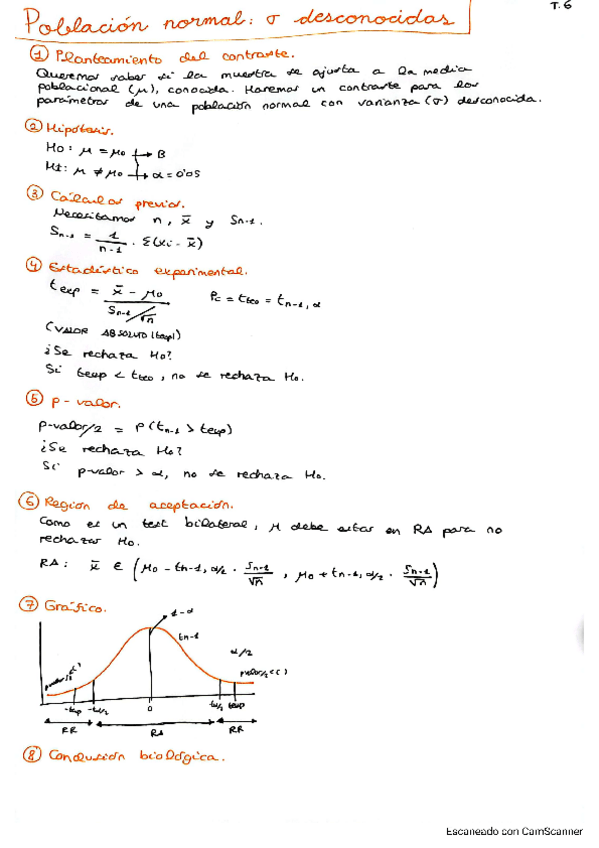 T.6
Población normal: σ desconocidas
① Planteamiento del contraste.
Queremos saber si la muestra se ajusta a la media
poblacional (μ), conocida. Haremos un contraste para los
parámetros de una población normal con varianza (σ) desconocida.
② Hipótesis.
H0: μ = μ0 → B
H1: μ ≠ μ0 → α = 0'05
③ Cálculos previos.
Necesitamos n, x̄ y Sn-1.
Sn-1 = 1/n-1 · Σ(xi - x̄)
④ Estadístico experimental.
texp = x̄ - μ0 / Sn-1/√n    Pc = tteo = tn-1, α
(VALOR ABSOLUTO |texp|)
¿Se rechaza H0?
Si texp < tteo, no se rechaza H0.
⑤ p-valor.
p-valor/2 = P(tn-1 > texp)
¿Se rechaza H0?
Si p-valor > α, no se rechaza H0.
⑥ Región de aceptación.
Como es un test bilateral, μ debe estar en RA para no
rechazar H0.
RA: x̄ ∈ (μ0 - tn-1, α/2 · Sn-1/√n , μ0 + tn-1, α/2 · Sn-1/√n)
⑦ Gráfico.
1-α
tn-1
α/2
-texp -tα/2 0 tα/2 texp
RR RA RR
⑧ Conclusión biológica.
Escaneado con CamScanner